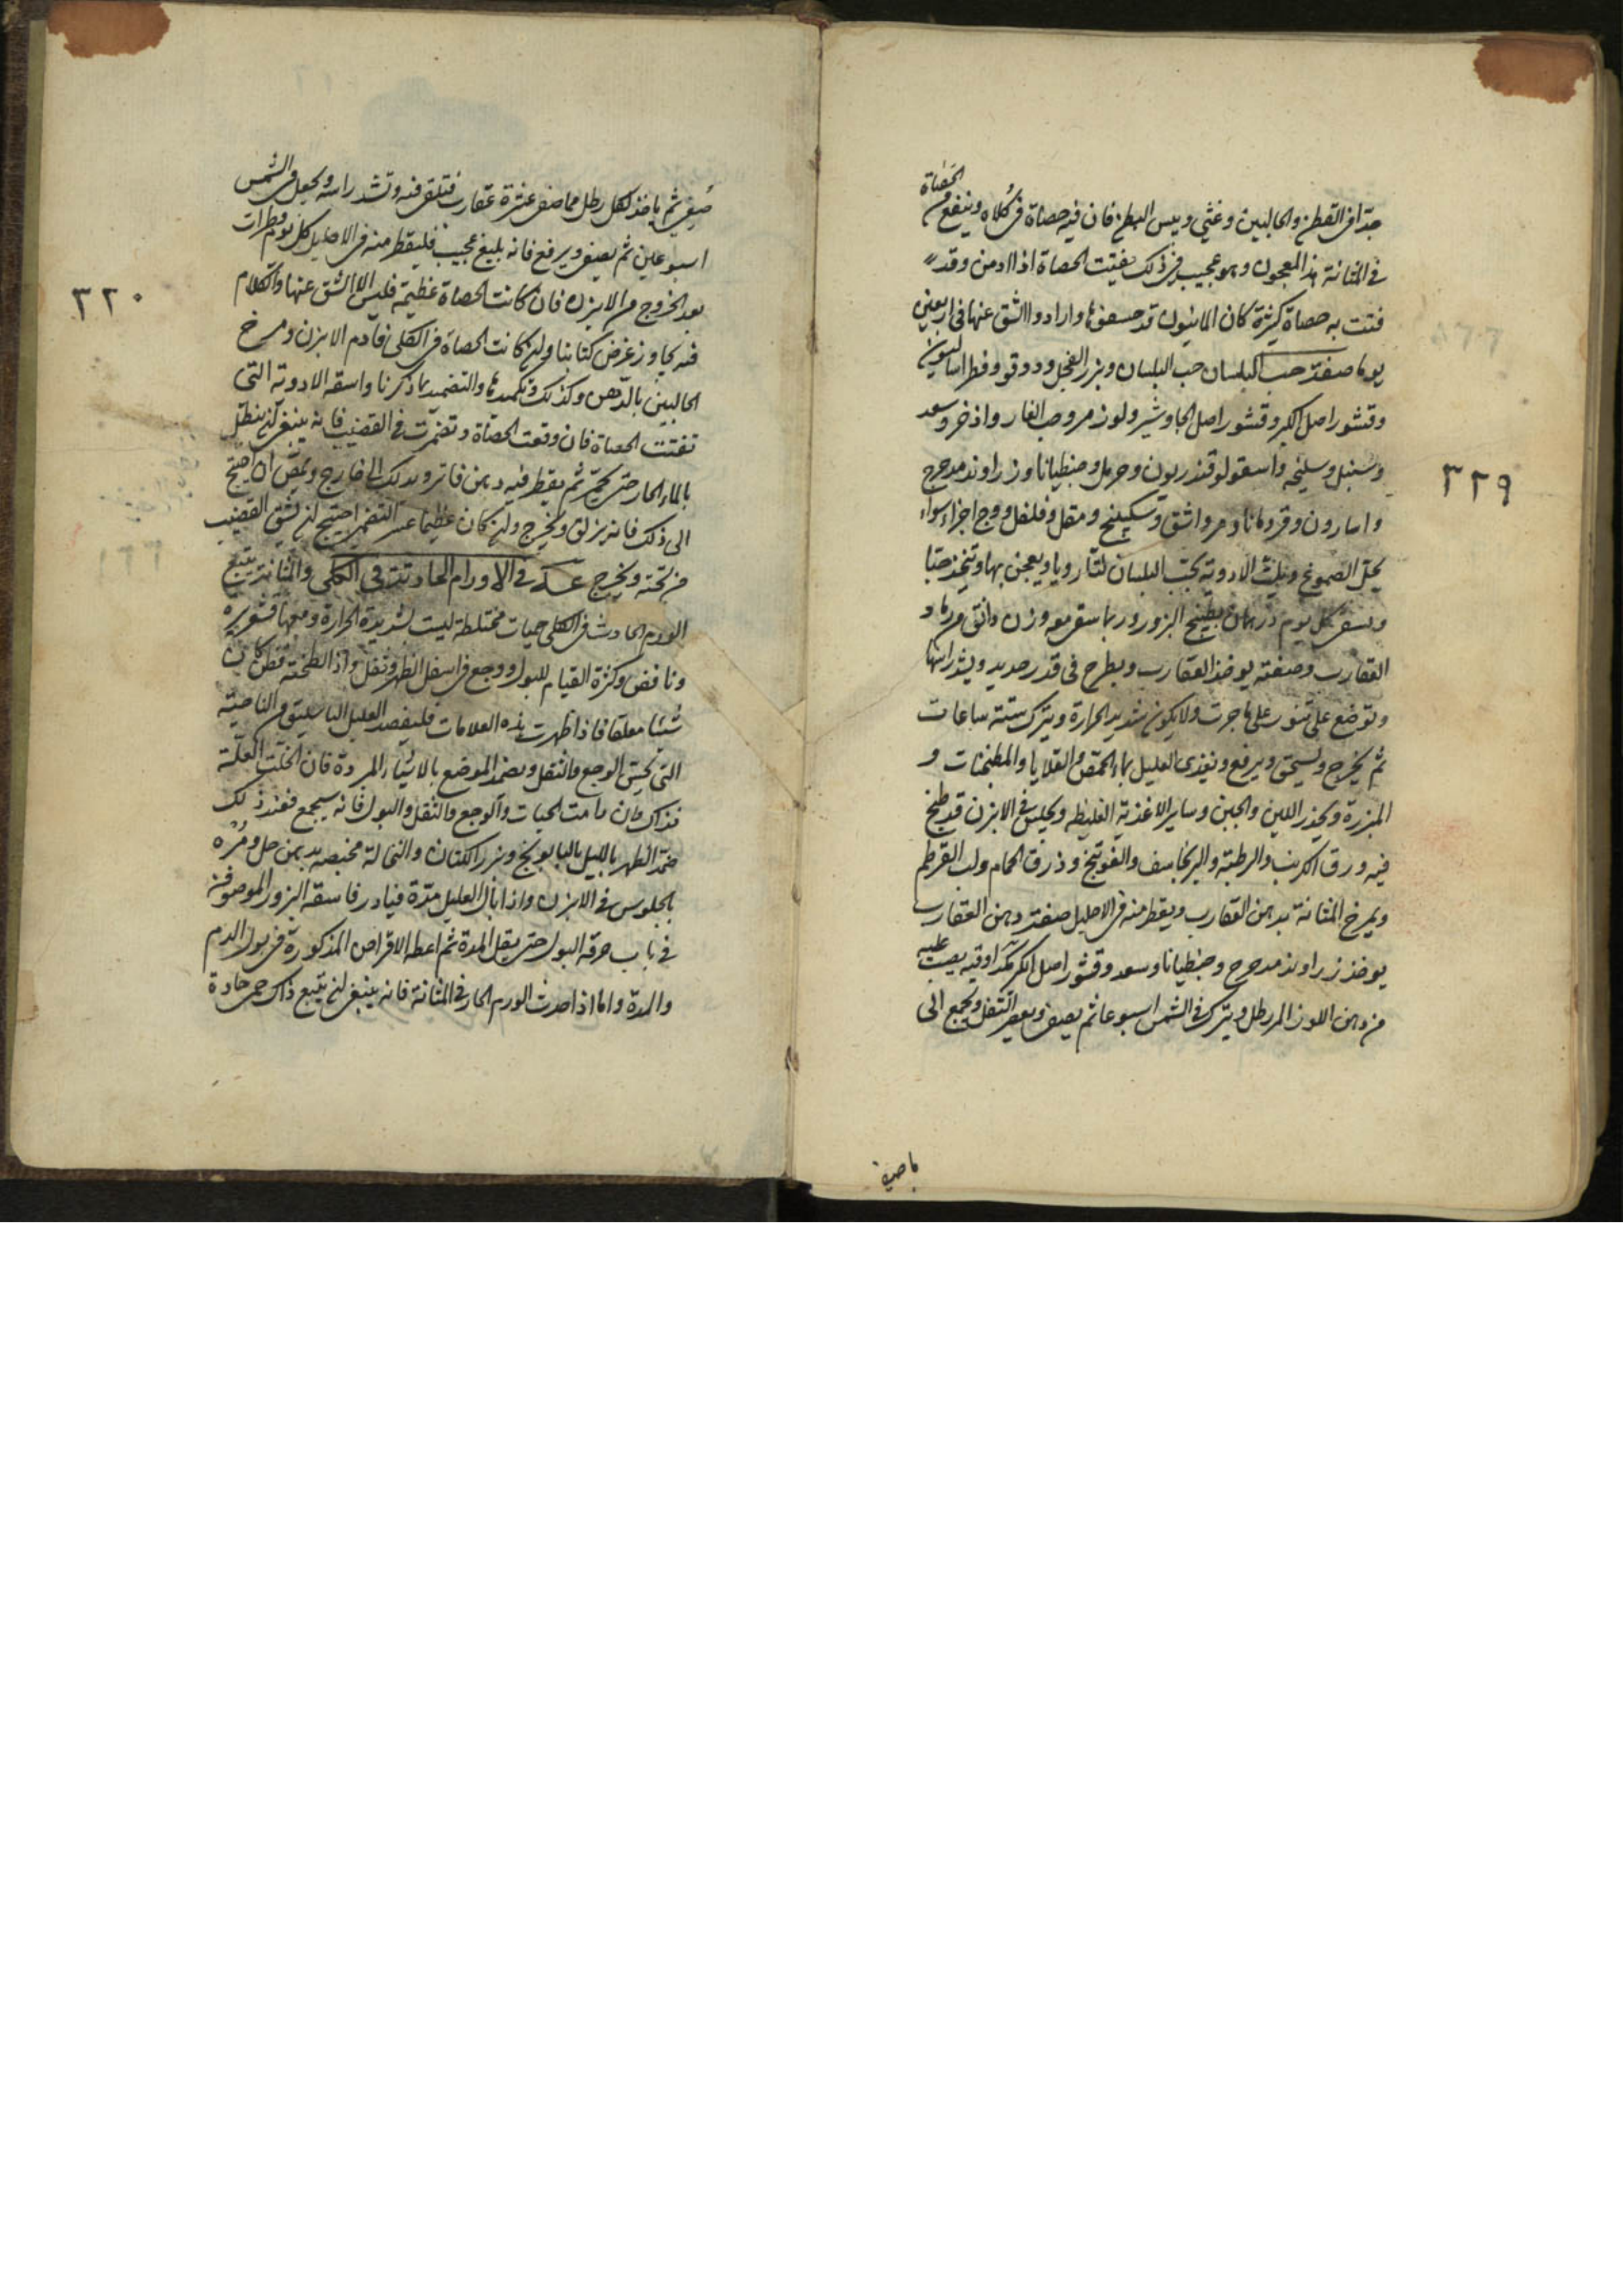 جدا في القطن والحالبين وغثي ويبس البطن فان فيه حصاة في كلاه وينفع من الحصاة
في المثانة هذا المعجون وهو عجيب في ذلك يفتت الحصاة اذا ادمن وقد
فتت به حصاة كثيرة كان الاسود قد حسها وارادوا الشق عنها في اربعين
يوما صفته حب البلسان حب البلسان وبزر الفجل ودوقو وفطراساليون
وقشور اصل الكبر وقشور اصل الجاوشير ولوز مر وحب الغار واذخر وسعد
وسنبل وسليخه واسقولوقندريون وحرمل وجنطيانا وزراوند مدحرج
واسارون وقردمانا ومر واشق وسكبينج ومقل وفلفل ووج اجزاء سواء
يحل الصموغ ويلت الادوية بحب البلسان لتا رويا ويعجن بها ويتخذ حبا
ويسقى كل يوم درهمان بطبيخ البزور وربما سقي معه وزن دانق من رماد
العقارب وصفته يوخذ العقارب ويطرح في قدر حديد ويشد راسها
وتوضع على تنور على اجرت ولا يكون شديد الحرارة ويترك ستة ساعات
ثم يخرج ويسحق ويرفع ويغذى العليل بماء الحمص والقلايا والمطنجنات و
المبزرة ويحذر اللبن والجبن وساير الاغذية الغليظه ويجلس في الابزن قد طبخ
فيه ورق الكرنب والرطبة والبرنجاسف والفوتنج وذرق الحمام ولب القرطم
ويمرخ المثانة بدهن العقارب ويقطر منه في الاحليل صفة دهن العقارب
يوخذ زراوند مدحرج وجنطيانا وسعد وقشور اصل الكبر اوقيه يصب عليه
من دهن اللوز المر رطل ويترك في الشمس اسبوعا ثم يصفى ويعصر الثفل ويجمع الى
٣٢٩
ثم ياخذ لكل رطل مما صفي عشرة عقارب فتلقى فيه وتشد راسه ويجعل في الشمس
اسبوعين ثم يصفى ويرفع فانه بليغ عجيب فليقطر منه في الاحليل كل يوم قطرات
بعد الخروج من الابزن فان كانت الحصاة عظيمة فليس الا الشق عنها والكلام
فيه يجاوز غرض كتابنا وان كانت الحصاة في الكلى فادم الابزن ومرخ
الحالبين بالدهن وكذلك وتكميدها والتضميد بما ذكرنا واسقه الادوية التي
تفتت الحصاة فان وقعت الحصاة في القضيب فانه ينبغي ان ينطل
بالماء الحار حتى يحمر ثم يقطر فيه دهن فاتر ويدلك الى خارج ويمص ان احتيج
الى ذلك فانه يزلق ويخرج وان كان عظيما عسر احتيج ان يشق القضيب
من تحته ويخرج في الاورام الحادثة في الكلى والمثانة يتبع
الورم الحادث في الكلى حميات مختلطة ليست بشديدة الحرارة ومعها قشعريرة
ونافض وكثرة القيام للبول ووجع في اسفل الظهر وثقل واذا انطحته تظن كان
شيئا معلقا فاذا ظهرت هذه العلامات فليفصد العليل الباسليق من الناحية
التي يحس الوجع والثقل ويضمد الموضع بالاشياء المبردة فان انحلت العلة
فذاك وان دامت الحميات والوجع والثقل والبول فانه سيجمع فعند ذلك
ضمد الظهر بالليل بالبابونج وبزر الكتان والنخالة مخبصه بدهن حل ومره
بالجلوس في الابزن واذا بال العليل مدة فبادر فاسقه البزور الموصوفة
في باب حرقة البول حتى يقل المدة ثم اعطه الاقراص المذكورة في بول الدم
والمدة واما اذا حدث الورم الحار في المثانة فانه ينبغي ان يتبع ذاك حمى حادة
٣٢٠